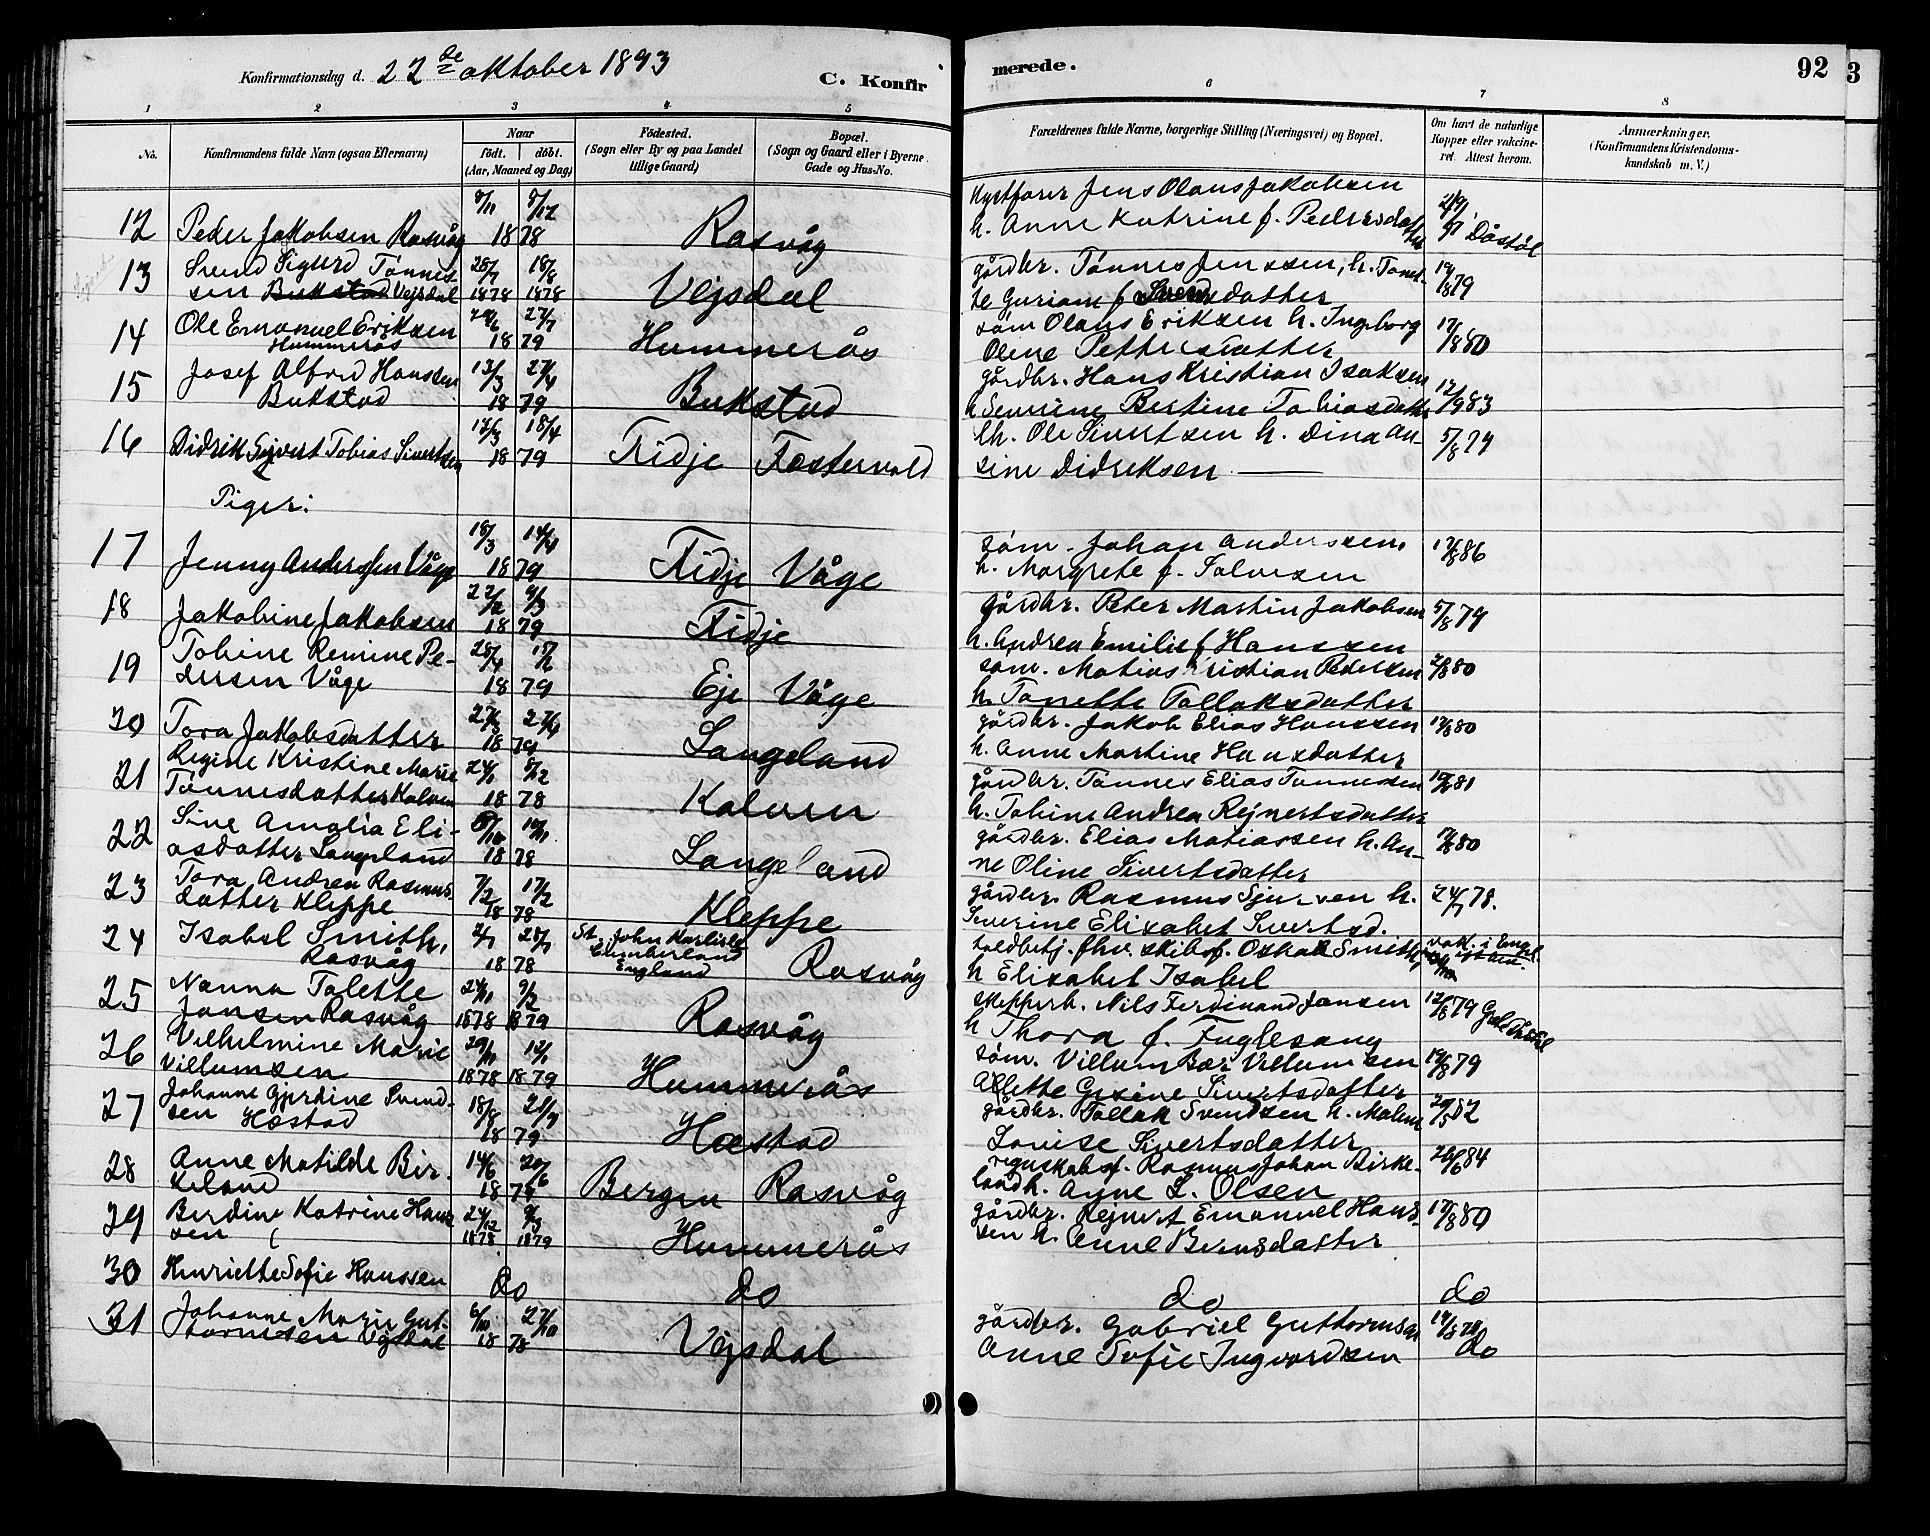 Konfirmationsdag d. 22de oktober 1893
C. Konfirmerede.
92
3
1 2 3 4 5 6 7 8
No.
Konfirmandens fulde Navn (ogsaa Efternavn)
Naar
födt. döbt.
(Aar, Maaned og Dag)
Födested.
(Sogn eller By og paa Landet
tillige Gaard)
Bopæl.
(Sogn og Gaard eller i Byerne
Gade og Hus-No.
Forældrenes fulde Navne, borgerlige Stilling (Næringsvei) og Bopæl.
Om havt de naturlige
Kopper eller vakcine-
ret. Attest herom.
Anmærkninger.
(Konfirmandens Kristendoms-
kundskab m. V.)
12 Peder Jakobsen Rasvåg 1878 Rasvåg
Jens Olaus Jakobsen
h. Anne Katrine f. Pedersdatter
13 Svend Sigurd Tønnes-
sen Bukstad Vejsdal 1878 1878 Vejsdal
gårdbr. Tønnes Jenssen, h. Tonet-
te Guriane f. Svendsdatter 19/8 79
14 Ole Emanuel Eriksen
Hummerås 1879 27/7 Hummerås
søm Olaus Eriksen h. Ingeborg
Oline Pettersdatter 17/8 80
15 Josef Alfred Hanssen
Bukstad 13/3 27/4 1879 Bukstad
gårdbr. Hans Kristian Isaksen
h. Severine Bertine Tobiasdatter 12/9 83
16 Didrik Sejvert Tobias Sivertsen 12/3 18/4 1879 Fidje Fostervold
Ole Sivertsen h. Dina An-
sine Didriksen 5/8 79
Piger:
17 Jenny Anderssen Våge 18/3 14/4 1879 Fidje Våge
søm. Johan Anderssen
h. Margrete f. Salvesen
18 Jakobine Jakobsen 22/2 9/3 1879 Fidje
gårdbr. Peter Martin Jakobsen 5/8 79
h. Andrea Emilie f. Hanssen
19 Tobine Remine Pe-
dersen Våge 1879 Eje Våge
søm. Matias Kristian Pedersen
h. Tonette Tollaksdatter
20 Tora Jakobsdatter 27/4 1879 Langeland
gårdbr. Jakob Elias Hanssen
h. Anne Martine Hansdatter
21 Regine Kristine Marie
Tønnesdatter Kalven 1878 Kalven
gårdbr. Tønnes Elias Tønnessen
h. Tobine Andrea Rejnertsdatter
22 Sine Amalia Eli-
asdatter Langeland 1878 Langeland
gårdbr. Elias Matiassen h. An-
ne Oline Sivertsdatter
23 Tora Andrea Rasmus-
datter Kleppe 7/2 17/2 1878 Kleppe
gårdbr. Rasmus h.
Severine Elisabet Sivertsd.
24 Isabel Smith,
Rasvåg 1878 St. John Karlisle
Cumberland
England Rasvåg
toldbetj. fhv. skibsf. Oskar Smith
h Elisabet Isabel
25 Nanna Talette
Jansen Rasvåg 24/11 9/2 1878 1879 Rasvåg
skipperh. Nils Ferdinand Jansen
h Thora f. Fuglesang
26 Vilhelmine Marie
Villumsen 1878 1879 Hummerås
søm. Villum Bær Villumsen
Alette Gesine Sivertsdatter
27 Johanne Gjerdine Svend-
sen Hæstad 18/8 21/9 1879 Hæstad
gårdbr. Tollak Svendsen h. Malene
Lovise Sivertsdatter
28 Anne Matilde Bir-
keland 14/6 20/6 1878 Bergen Rasvåg
regnskabsf. Rasmus Johan Birke-
land h. Anne L. Olsen 26/6 84
29 Berdine Katrine Hans-
sen 24/12 9/3 1878 1879 Hummerås
gårdbr. Rejnert Emanuel Hans-
sen h. Anne Berntsdatter 17/8 80
30 Henriette Sofie Hanssen do do do do
31 Johanne Marie Gut-
tormsen Vejsdal 6/10 27/10 1878 Vejsdal
gårdbr. Gabriel Guttormsen
Anne Sofie Ingvardsen do